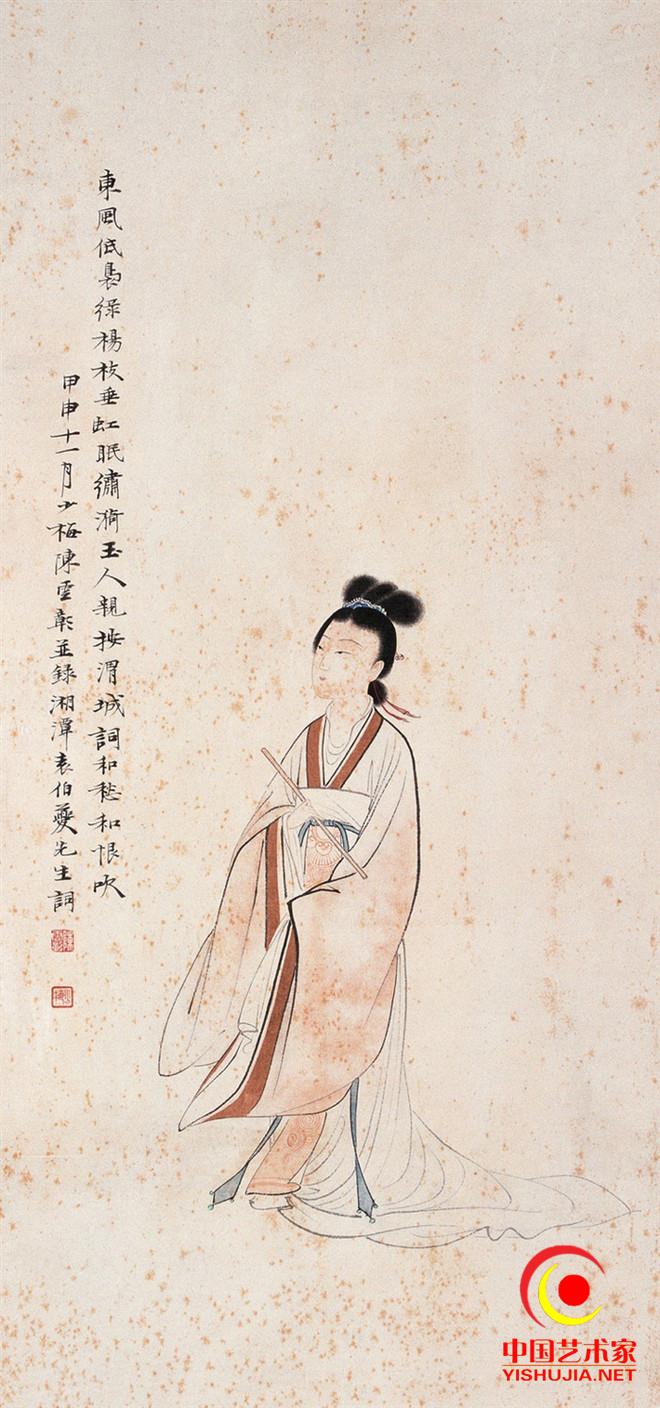 東風低裊綠楊枝垂虹眠繡漪玉人親按渭城詞和愁和恨吹
甲申十一月少梅陳雲彰並録湘潭袁伯夔先生詞
中国艺术家
YISHUJIA.NET